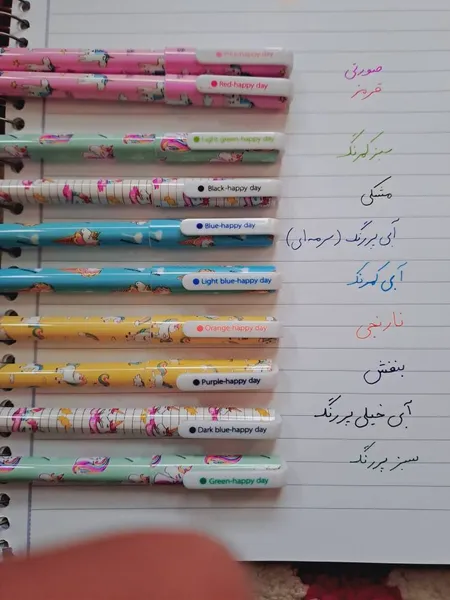 Pink-happy day صورتی
Red-happy day قرمز
Light green-happy day سبز کمرنگ
Black-happy day مشکی
Blue-happy day آبی پررنگ (سرمه‌ای)
Light blue-happy day آبی کمرنگ
Orange happy day نارنجی
Purple-happy day بنفش
Dark blue-happy day آبی خیلی پررنگ
Green-happy day سبز پررنگ